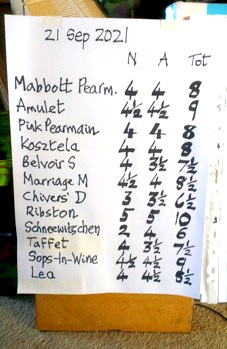 21 Sep 2021
N A Tot
Mabbott Pearm. 4 4 8
Amulet 4½ 4½ 9
Pink Pearmain 4 4 8
Kosztela 4 4 8
Belvoir S 4 3½ 7½
Marriage M 4½ 4 8½
Chivers' D 3 3½ 6½
Ribston 5 5 10
Schneewittchen 2 4 6
Taffet 4 3½ 7½
Sops-In-Wine 4½ 4½ 9
Lea 4 4½ 8½